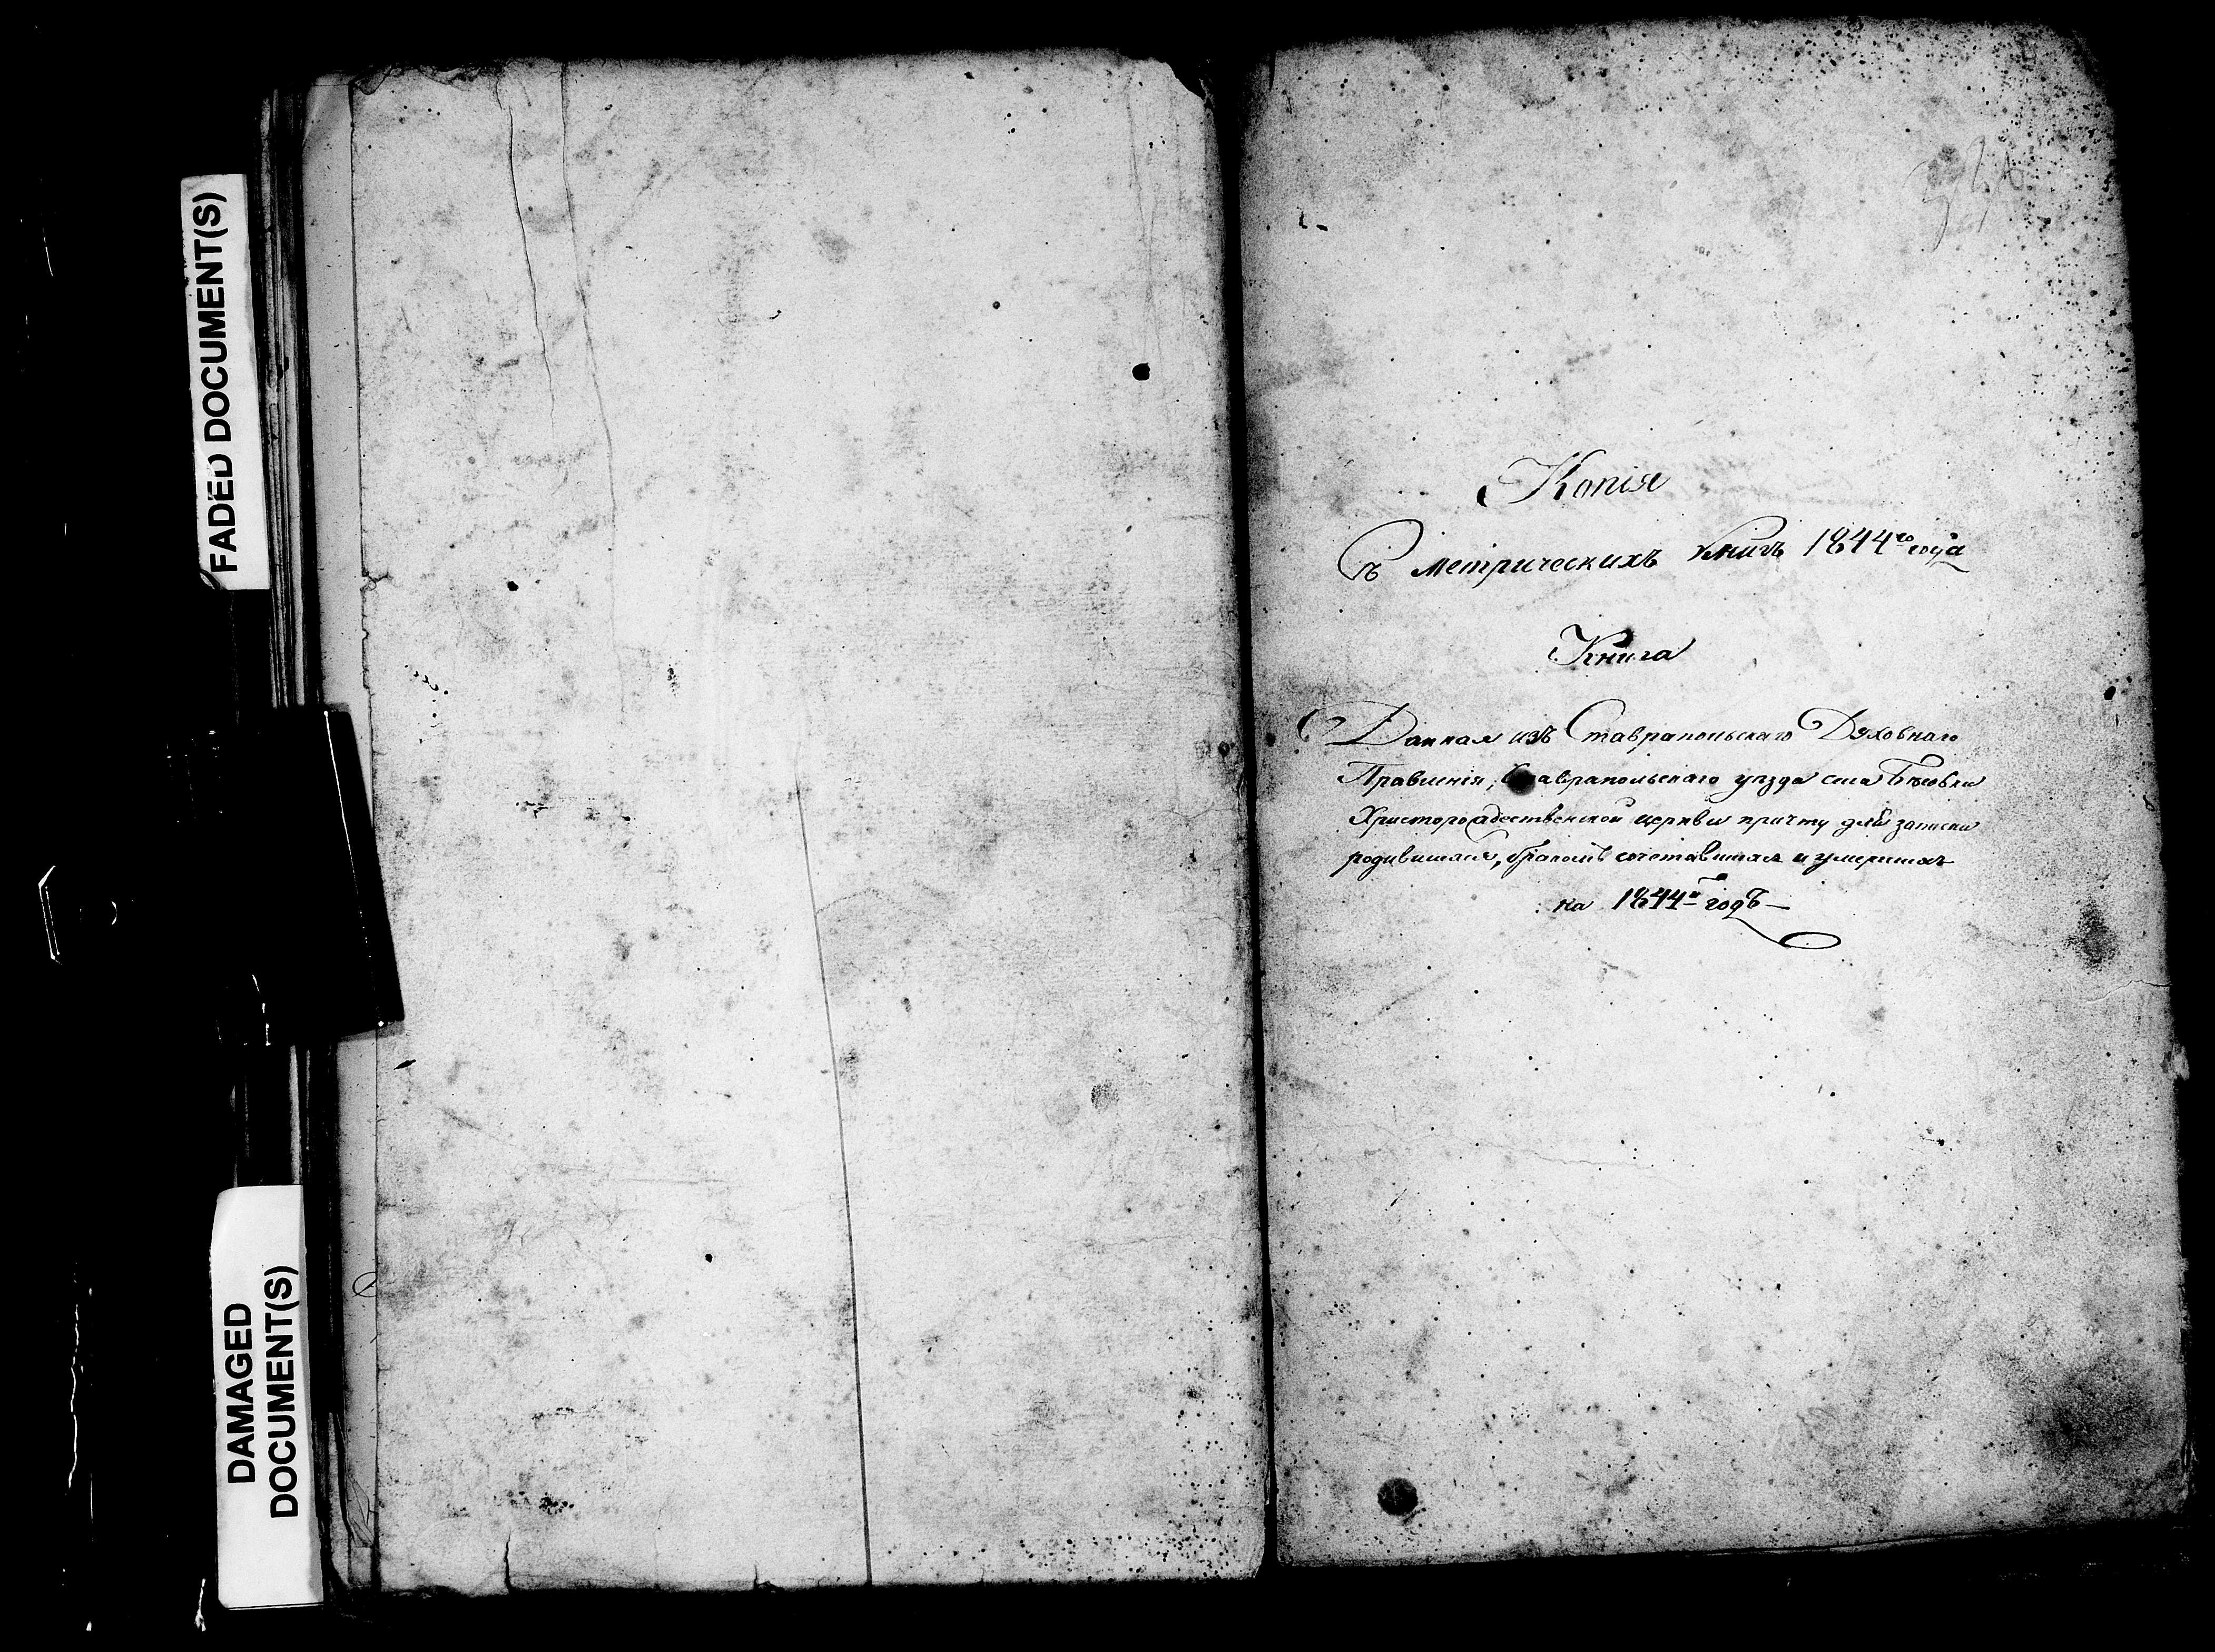 FADED DOCUMENT(S)
DAMAGED
DOCUMENT(S)
Копія
Съ метрическихъ книгъ 1844го года
Книга
Данная изъ Ставропольскаго Духовнаго
Правленія, Ставропольскаго уѣзда села
Христорождественской церкви причту для записки
родившихся, бракомъ сочетавшихся и умершихъ
на 1844й годъ